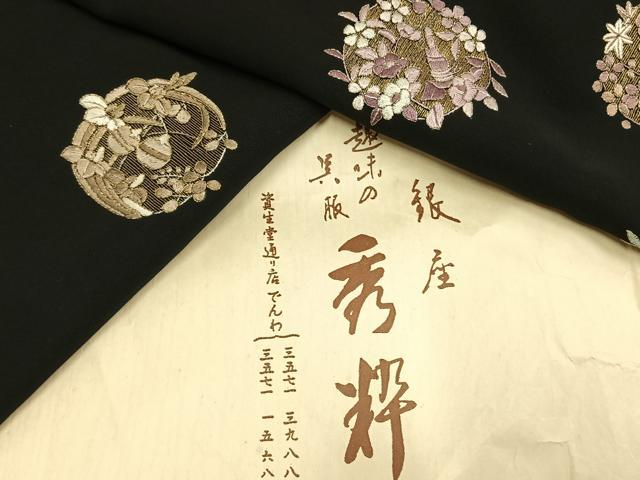 銀座
趣味の
呉服
秀粋
資生堂通り店でんわ
三五七一 三九八八
三五七一 一五六八